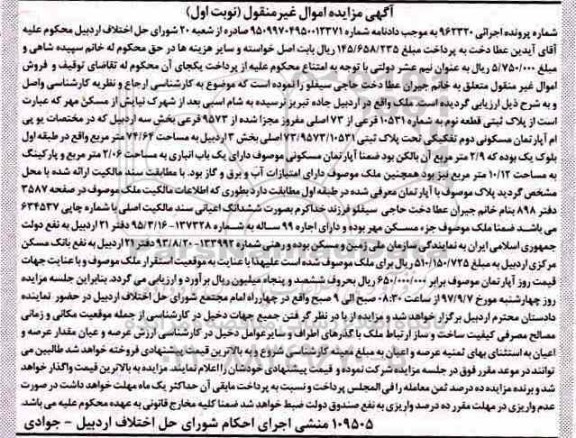 آگهی مزایده اموال غیر منقول (نوبت اول)
شماره پرونده اجرائی ۹۶۲۳۲۰ به موجب دادنامه شماره ۹۵۰۹۹۷۰۴۹۵۰۰۱۳۳۷۱ صادره از شعبه ۲۰ شورای حل اختلاف اردبیل محکوم علیه
آقای آیدین عطا دخت به پرداخت مبلغ ۱۴۵/۶۵۸/۲۳۵ ریال بابت اصل خواسته و سایر هزینه ها در حق محکوم له خانم سپیده شاهی و
مبلغ ۵/۷۵۰/۰۰۰ به عنوان نیم عشر دولتی با توجه به امتناع محکوم علیه از پرداخت یکجای آن محکوم له تقاضای توقیف و فروش
اموال غیر منقول متعلق به خانم جیران عطا دخت حاجی سیفلو را نموده است که موضوع به کارشناسی ارجاع و نظریه کارشناسی واصل
و به شرح ذیل ارزیابی گردیده است. ملک واقع در اردبیل جاده تبریز نرسیده به شام اسبی بعد از شهرک نیایش از مسکن مهر که عبارت
است از پلاک ثبتی قطعه نوم به شماره ۱۰۵۳۱ فرعی از ۷۳ اصلی مفروز مجزا شده از ۹۵۷۳ فرعی بخش سه اردبیل که در مختصات یو پی
ام آپارتمان مسکونی دوم تفکیکی تحت پلاک ثبتی ۷۳/۹۵۷۳/۱۰۵۳۱ اصلی بخش ۳ اردبیل به مساحت ۷۴/۶۴ متر مربع واقع در طبقه اول
بلوک یک بوده که ۲/۹ متر مربع آن بالکن بود ضمناً آپارتمان مسکونی موصوف دارای یک باب انباری به مساحت ۲/۰۶ متر مربع و پارکینگ
به مساحت ۱۰/۱۲ متر مربع نیز بود همچنین ملک موصوف دارای امتیازات آب و برق و گاز بود. با مطابقت سند مالکیت ارائه شده با محل
مشخص گردید پلاک موصوف با آپارتمان معرفی شده در طبقه اول مطابقت دارد بطوری که اطلاعات مالکیت ملک موصوف در صفحه ۳۵۸۷
دفتر ۸۹۸ بنام خانم جیران عطا دخت حاجی سیفلو فرزند خداکرم بصورت ششدانگ اعیانی سند مالکیت اصلی با شماره چاپی ۶۳۴۵۳۷
می باشد ضمناً ملک موصوف جزء مسکن مهر بوده و دارای اجاره ۹۹ ساله به شماره ۱۳۷۳۲۸-۹۵/۳/۱۶ دفتر ۲۱ اردبیل به نفع دولت
جمهوری اسلامی ایران به نمایندگی سازمان ملی زمین و مسکن بوده و رهنی شماره ۱۳۳۹۹۲-۹۳/۸/۲۰ دفتر ۲۱ اردبیل به نفع بانک مسکن
مرکزی اردبیل به مبلغ ۵۱۰/۱۵۰/۷۲۵ ریال برای ملک موصوف شده است علیهذا با عنایت به موقعیت استقرار ملک موصوف و با عنایت جهات
قیمت روز آپارتمان موصوف برابر ۶۵۰/۰۰۰/۰۰۰ ریال بحروف ششصد و پنجاه میلیون ریال برآورد و ارزیابی می گردد. بنابراین جلسه مزایده
روز چهارشنبه مورخ ۹۷/۹/۷ از ساعت ۰۸:۳۰ صبح الی ۹ صبح واقع در چهارراه امام مجتمع شورای حل اختلاف اردبیل در حضور نماینده
دادستان محترم اردبیل برگزار خواهد شد و مزایده از با در نظر گرفتن جمیع جهات دخیل در کارشناسی از جمله موقعیت مکانی و زمانی
مصالح مصرفی کیفیت ساخت و ساز ارتباط ملک با گذرهای اطراف و سایر عوامل دخیل در کارشناسی ارزش عرصه و عیان مقدار عرصه و
اعیان به استثنای بهای ثمنیه عرصه و اعیان به مبلغ مقرر کارشناسی شروع و به بالاترین قیمت پیشنهادی فروخته خواهد شد طالبین می
توانند در موعد مقرر فوق در جلسه مزایده شرکت نموده و قیمت پیشنهادی خودشان را اعلام نمایند. مزایده به بالاترین قیمت واگذار خواهد
شد و برنده مزایده ده درصد ثمن معامله را فی المجلس پرداخت و نسبت به پرداخت مابقی آن حداکثر یک ماه مهلت خواهد داشت در صورت
عدم واریزی در مهلت مقرر ده درصد واریزی به نفع صندوق دولت ضبط خواهد شد ضمناً کلیه مخارج قانونی به عهده محکوم علیه می باشد.
۱۰۹۵۰۵ منشی اجرای احکام شورای حل اختلاف اردبیل - جوادی